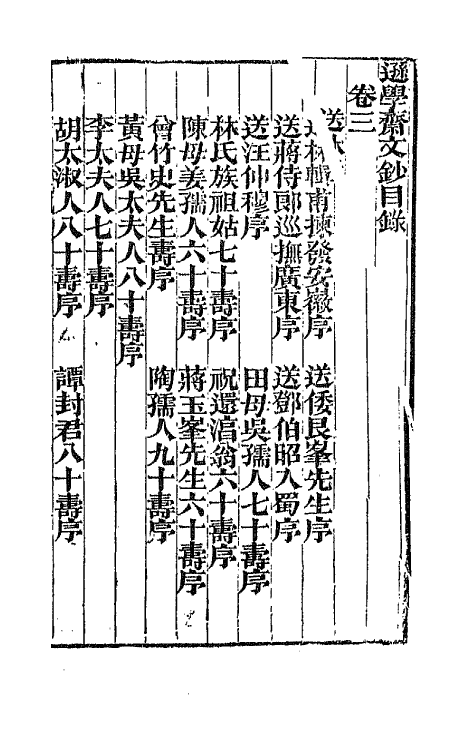 遜學齋文鈔目錄
卷三
送
林 甫揀發安徽序 送倭艮峯先生序
送蔣侍郎巡撫廣東序 送鄧伯昭入蜀序
送汪仲穆序 田母吳孺人七十壽序
林氏族祖姑七十壽序 祝還滄翁六十壽序
陳母姜孺人六十壽序 蔣玉峯先生六十壽序
曾竹史先生壽序 陶孺人九十壽序
黃母吳太夫人八十壽序
李太夫人七十壽序
胡太淑人八十壽序 譚封君八十壽序